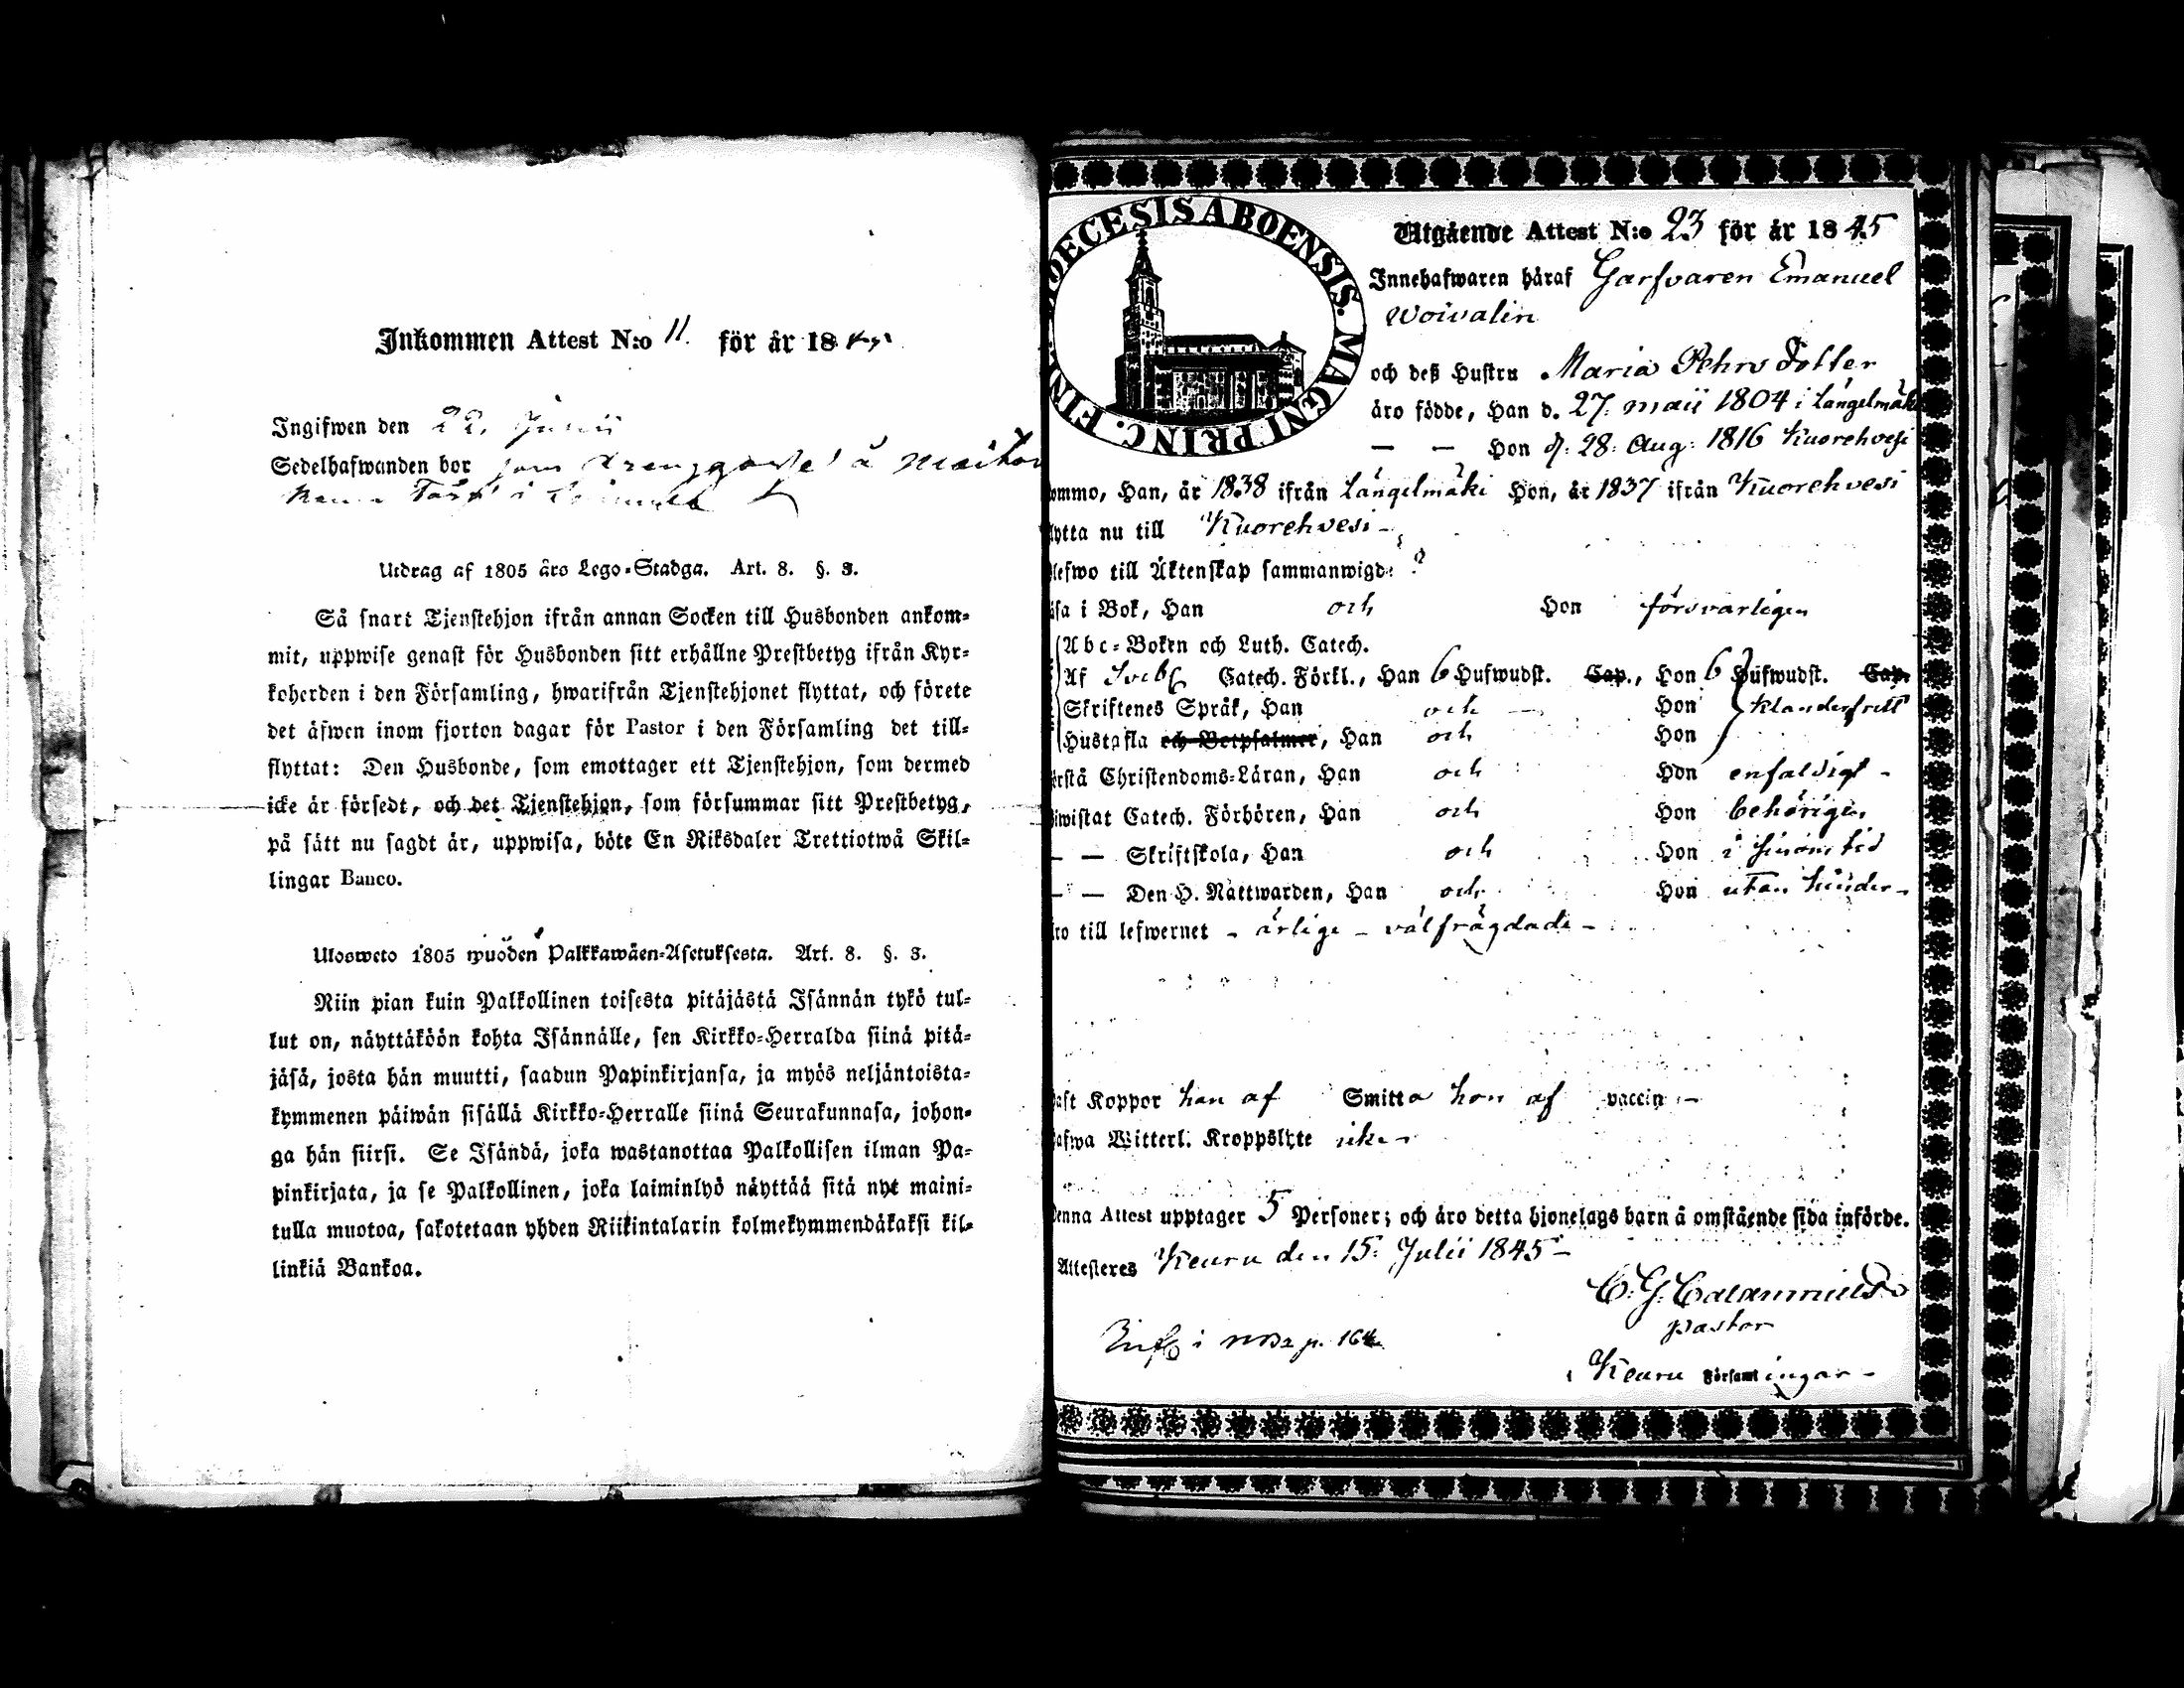 Inkommen Attest N:o 11. för år 18
Ingifwen den 22. Junii
Sedelhafwanden bor som å
i
Utdrag af 1805 års Lego-Stadga. Art. 8. §. 3.
Så snart Tjenstehjon ifrån annan Socken till Husbonden ankom-
mit, uppwise genast för Husbonden sitt erhållne Prestbetyg ifrån Kyr-
koherden i den Församling, hwarifrån Tjenstehjonet flyttat, och förete
det äfwen inom fjorton dagar för Pastor i den Församling det till-
flyttat: Den Husbonde, som emottager ett Tjenstehjon, som dermed
icke är försedt, och det Tjenstehjon, som försummar sitt Prestbetyg,
på sätt nu sagdt är, uppwisa, böte En Riksdaler Trettiotwå Skil-
lingar Banco.
Ulosweto 1805 wuoden Palkkawäen-Asetuksesta. Art. 8. §. 3.
Niin pian kuin Palkollinen toisesta pitäjästä Isännän tykö tul-
lut on, näyttäköön kohta Isännälle, sen Kirkko-Herralda siinä pitä-
jäsä, josta hän muutti, saadun Papinkirjansa, ja myös neljäntoista-
kymmenen päiwän sisällä Kirkko-Herralle siinä Seurakunnasa, johon-
ga hän siirsi. Se Isändä, joka wastanottaa Palkollisen ilman Pa-
pinkirjata, ja se Palkollinen, joka laiminlyö näyttää sitä nyt maini-
tulla muotoa, sakotetaan yhden Riikintalarin kolmekymmendäkaksi kil-
linkiä Bankoa.
DECESIS ABOENSIS. MAGNI PRINC. FIN
Utgående Attest N:o 23 för år 1845
Innehafwaren häraf Garfvaren Emanuel
Woivalin
och deß Hustru Maria Pehrs Dotter
äro födde, Han d. 27. maii 1804 i Längelmäki
— — Hon d. 28. Aug. 1816 Kuorehvesi
ommo, Han, år 1838 ifrån Längelmäki Hon, år 1837 ifrån Kuorehvesi
lytta nu till Kuorehvesi -
lefwo till Äktenskap sammanwigd ?
äsa i Bok, Han och Hon försvarligen
Abc-Boken och Luth. Catech.
Af Sveb Catech. Förkl., Han 6 Hufwudst. Cap., Hon 6 Hufwudst. Cap.
Skriftenes Språk, Han och — Hon klanderfritt
Hustafla och Botpsalmer, Han och Hon
örstå Christendoms-Läran, Han och Hon enfaldigt -
iwistat Catech. Förhören, Han och Hon behörigen
— — Skriftskola, Han och Hon i sinom tid
— — Den H. Nattwarden, Han och Hon utan hinder -
äro till lefwernet - ärlige - välfrägdade -
haft Koppor han af Smitta hon af vaccin -
hafwa Witterl. Kroppslyte icke -
Denna Attest upptager 5 Personer; och äro detta hjonelags barn å omstående sida införde.
Attesteres Keuru den 15. Julii 1845 -
C. G. Calamnius
Pastor
i Keuru Församlingar -
i p. 164